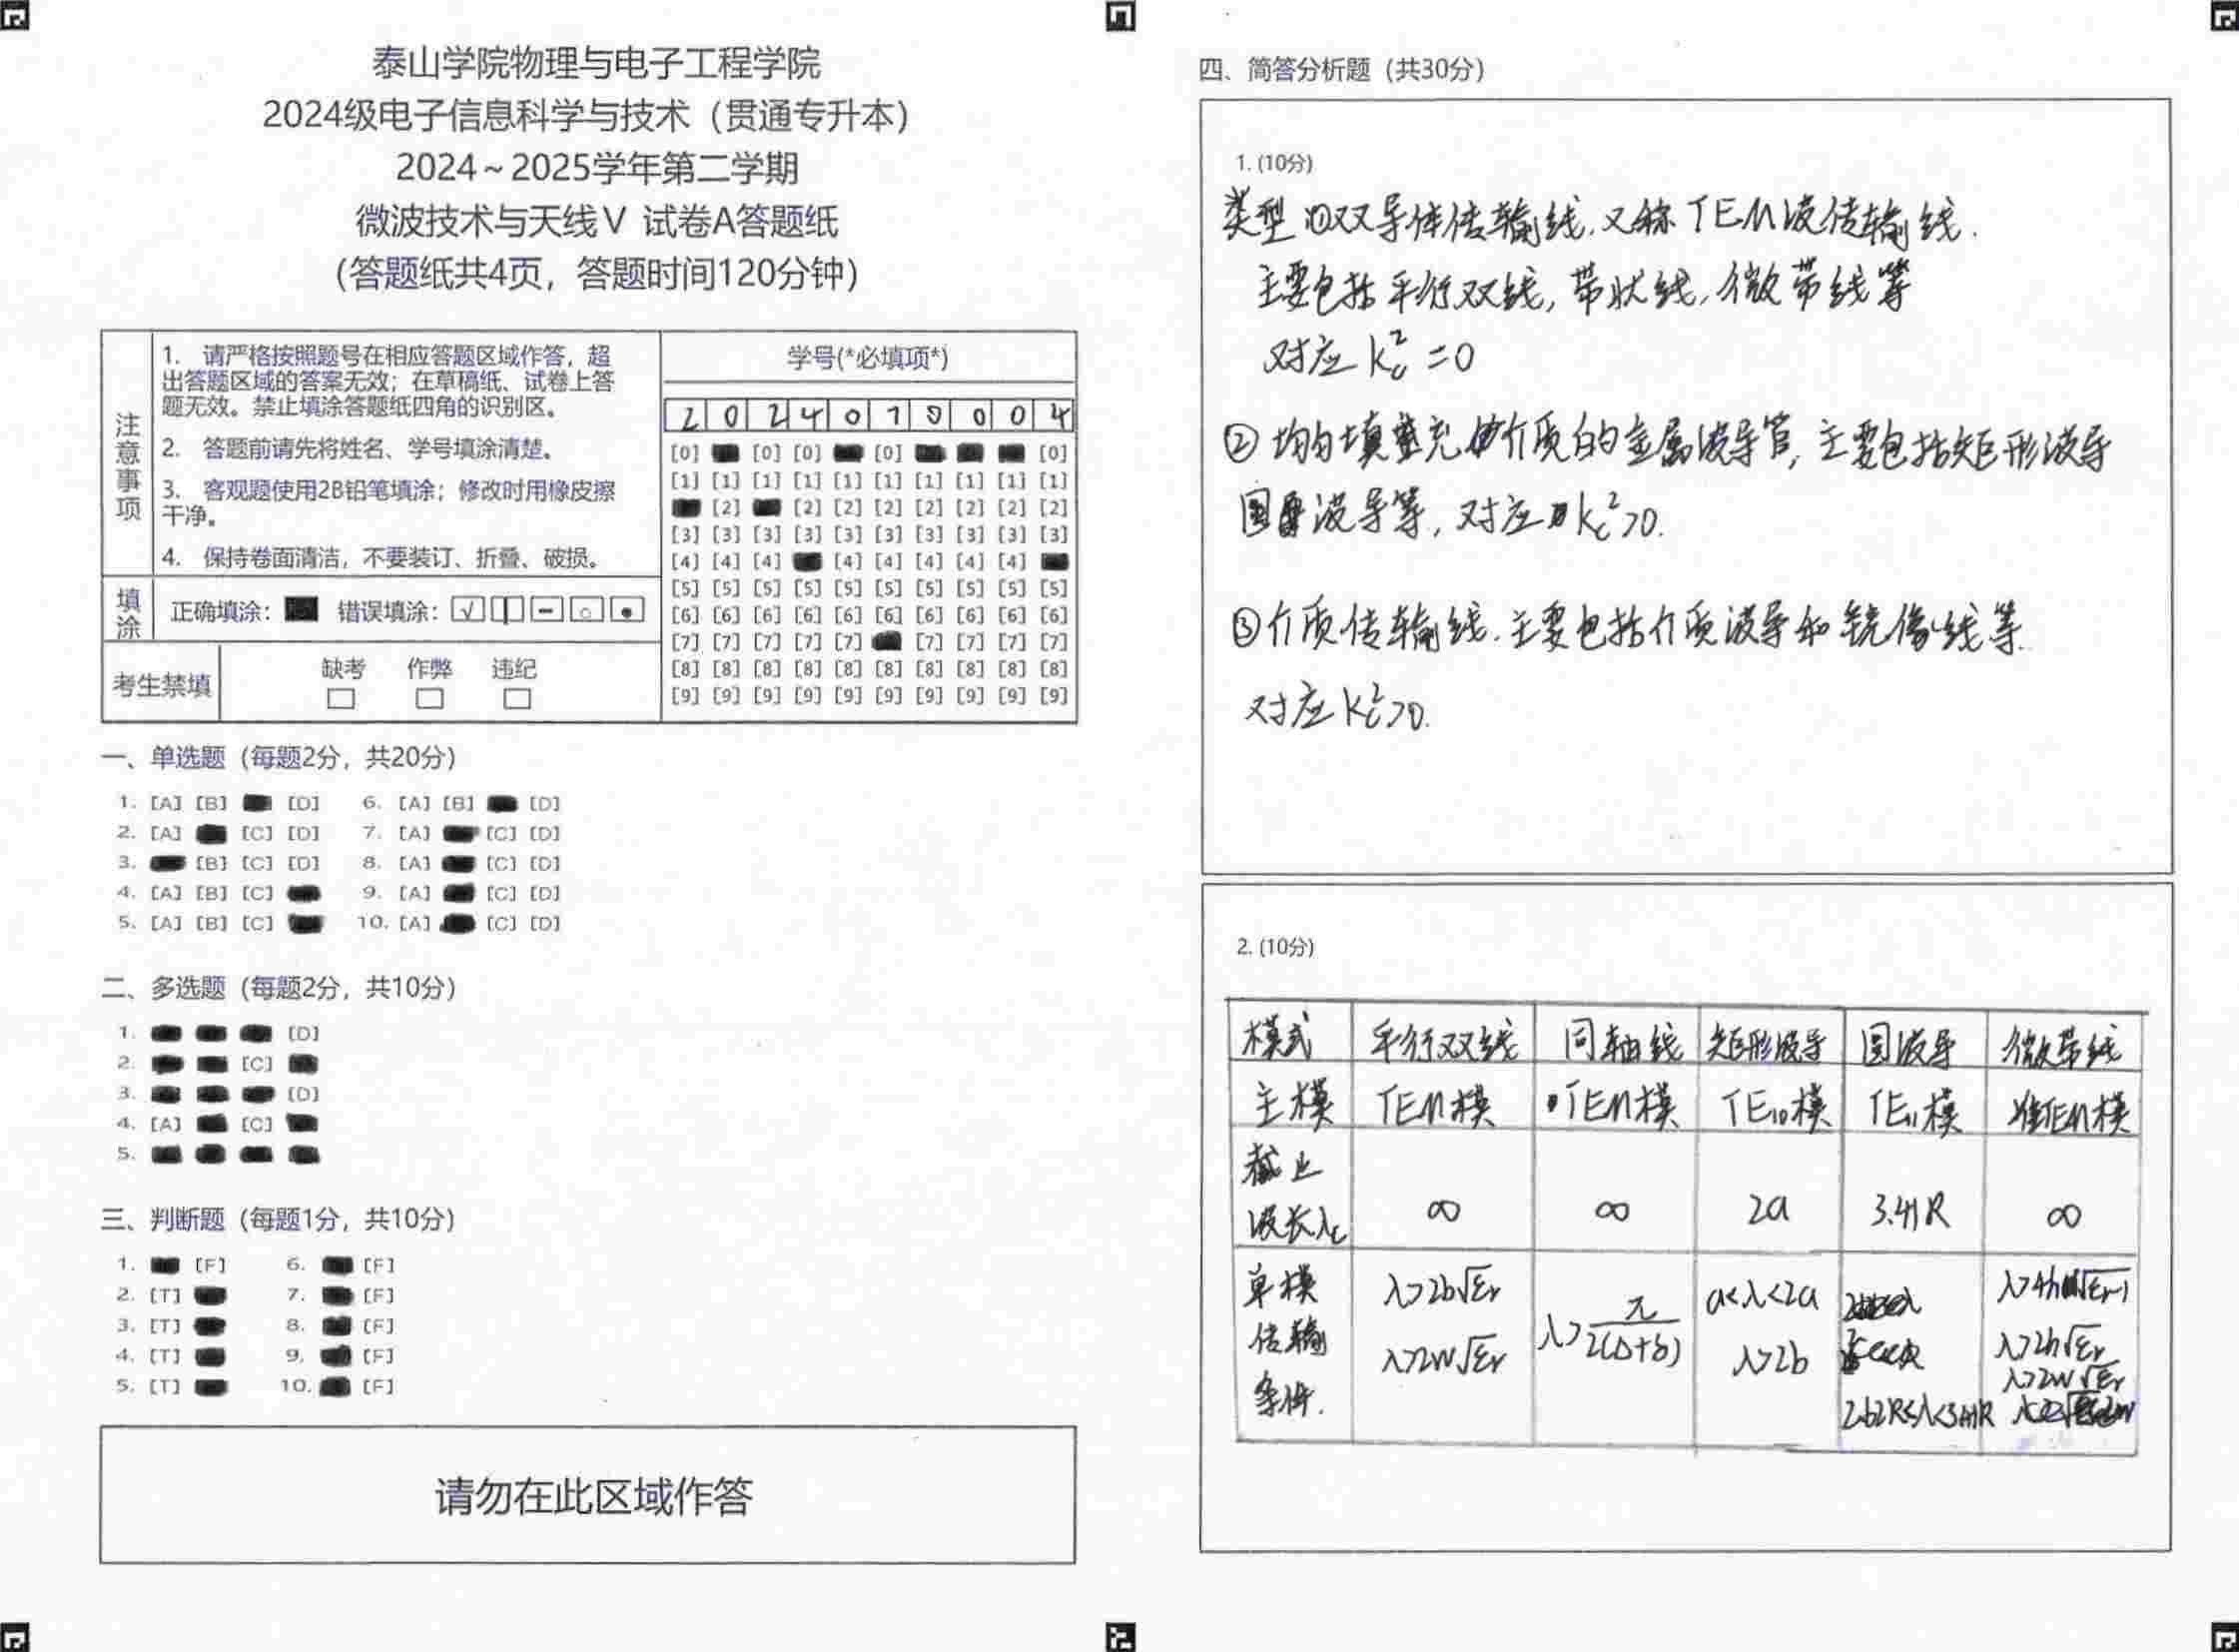 泰山学院物理与电子工程学院
2024级电子信息科学与技术（贯通专升本）
2024～2025学年第二学期
微波技术与天线Ⅴ 试卷A答题纸
（答题纸共4页，答题时间120分钟）
注意事项
1. 请严格按照题号在相应答题区域作答，超
出答题区域的答案无效；在草稿纸、试卷上答
题无效。禁止填涂答题纸四角的识别区。
2. 答题前请先将姓名、学号填涂清楚。
3. 客观题使用2B铅笔填涂；修改时用橡皮擦
干净。
4. 保持卷面清洁，不要装订、折叠、破损。
填涂 正确填涂： 错误填涂：
考生禁填 缺考 作弊 违纪
学号(*必填项*)
2 0 2 4 0 7 0 0 0 4
[0] [0] [0] [0] [0]
[1] [1] [1] [1] [1] [1] [1] [1] [1] [1]
[2] [2] [2] [2] [2] [2] [2] [2]
[3] [3] [3] [3] [3] [3] [3] [3] [3] [3]
[4] [4] [4] [4] [4] [4] [4] [4]
[5] [5] [5] [5] [5] [5] [5] [5] [5] [5]
[6] [6] [6] [6] [6] [6] [6] [6] [6] [6]
[7] [7] [7] [7] [7] [7] [7] [7] [7]
[8] [8] [8] [8] [8] [8] [8] [8] [8] [8]
[9] [9] [9] [9] [9] [9] [9] [9] [9] [9]
一、单选题（每题2分，共20分）
1. [A] [B] [D] 6. [A] [B] [D]
2. [A] [C] [D] 7. [A] [C] [D]
3. [B] [C] [D] 8. [A] [C] [D]
4. [A] [B] [C] 9. [A] [C] [D]
5. [A] [B] [C] 10. [A] [C] [D]
二、多选题（每题2分，共10分）
1. [D]
2. [C]
3. [D]
4. [A] [C]
5.
三、判断题（每题1分，共10分）
1. [F] 6. [F]
2. [T] 7. [F]
3. [T] 8. [F]
4. [T] 9. [F]
5. [T] 10. [F]
请勿在此区域作答
四、简答分析题（共30分）
1. (10分)
类型 ①双导体传输线，又称TEM波传输线.
主要包括平行双线，带状线，微带线等
对应 kc²=0
② 均匀填充介质的金属波导管，主要包括矩形波导
圆波导等，对应 kc²>0.
③介质传输线.主要包括介质波导和镜像线等.
对应 kc²>0.
2. (10分)
模式 平行双线 同轴线 矩形波导 圆波导 微带线
主模 TEM模 TEM模 TE₁₀模 TE₁₁模 准TEM模
截止
波长λc ∞ ∞ 2a 3.41R ∞
单模
传输
条件.
λ>2b√εr
λ>2w√εr
λ>π/2(D+b)
a<λ<2a
λ>2b
2.62R<λ<3.41R
λ>4h√εr-1
λ>2h√εr
λ>2w√εr